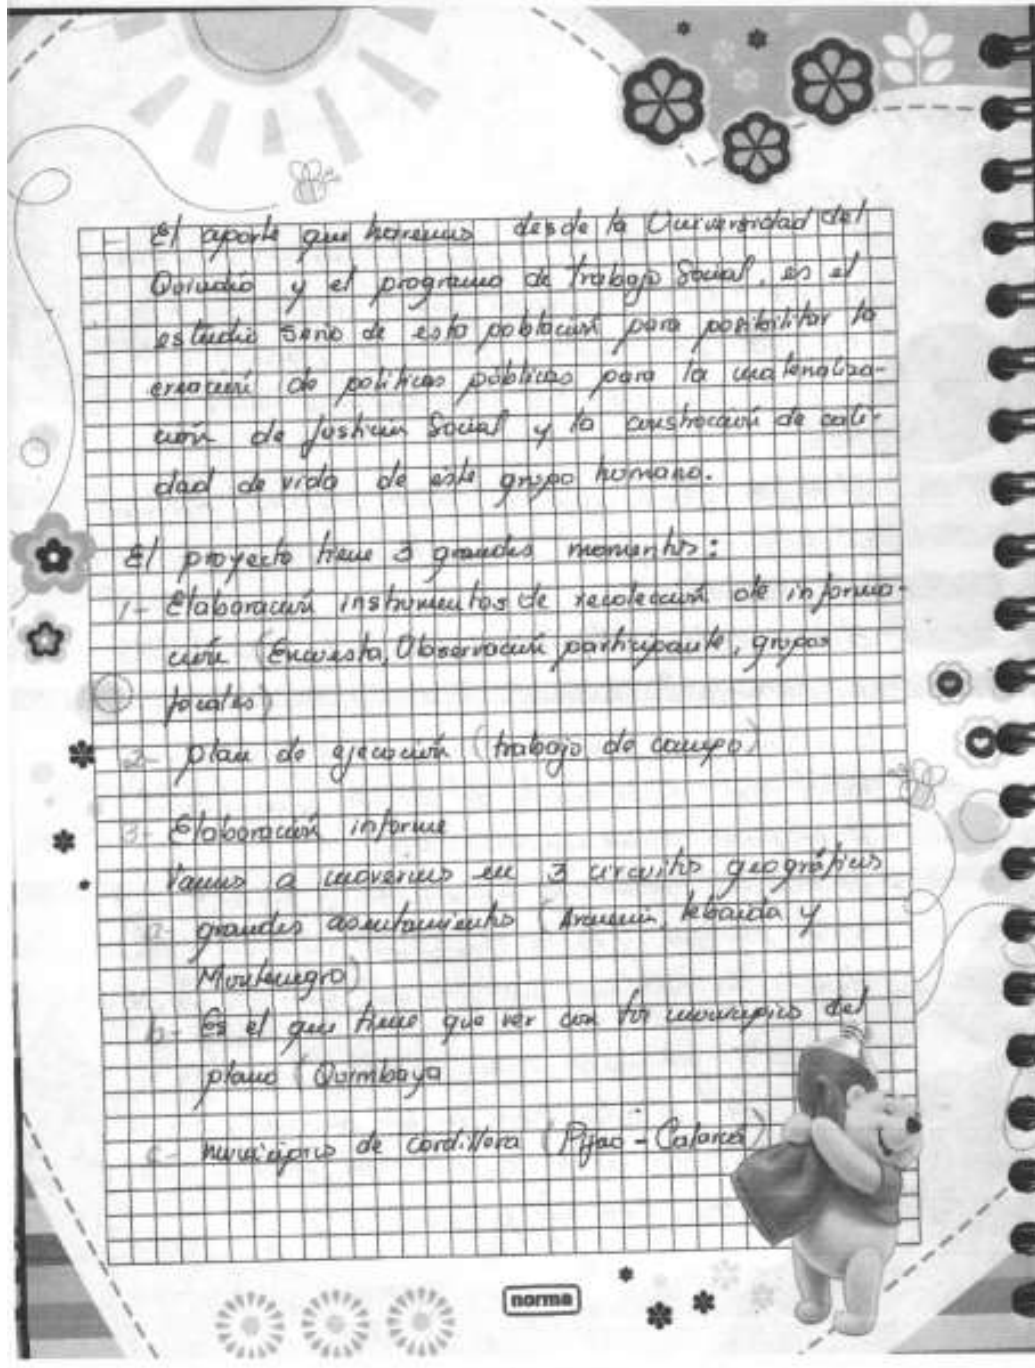 - El aporte que haremos desde la Universidad del
Quindío y el programa de Trabajo Social, es el
estudio serio de esta población para posibilitar la
creación de políticas públicas para la materializa-
ción de Justicia Social y la construcción de cali-
dad de vida de este grupo humano.
El proyecto tiene 3 grandes momentos:
1- Elaboración instrumentos de recolección de informa-
ción (Encuesta, Observación participante, grupos
focales)
2- plan de ejecución (trabajo de campo)
3- Elaboración informe
Vamos a movernos en 3 circuitos geográficos
a- grandes asentamientos (Armenia, tebaida y
Montenegro)
b- Es el que tiene que ver con los municipios del
plano (Quimbaya
c- municipios de cordillera (Pijao - Calarcá)
norma